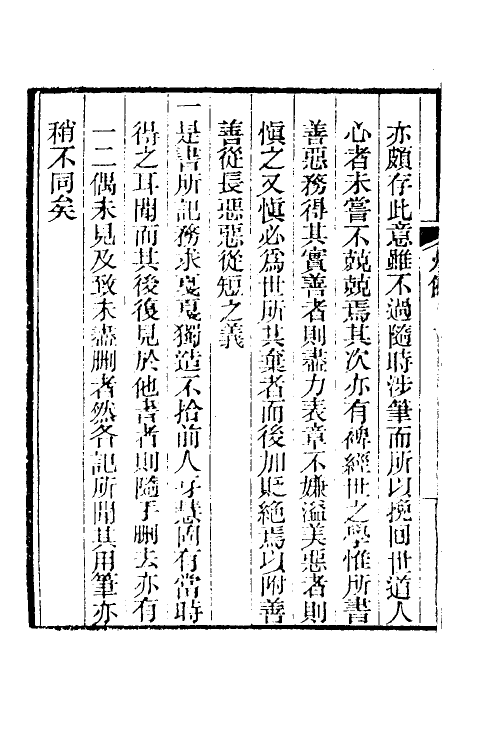 亦頗存此意雖不過隨時涉筆而所以挽回世道人
心者未嘗不兢兢焉其次亦有裨經世之學惟所書
善惡務得其實善者則盡力表章不嫌溢美惡者則
愼之又愼必爲世所共棄者而後加貶絶焉以附善
善從長惡惡從短之義
一是書所記務求戛戛獨造不拾前人牙慧間有當時
得之耳聞而其後復見於他書者則隨手刪去亦有
一二偶未見及致未盡刪者然各記所聞其用筆亦
稍不同矣